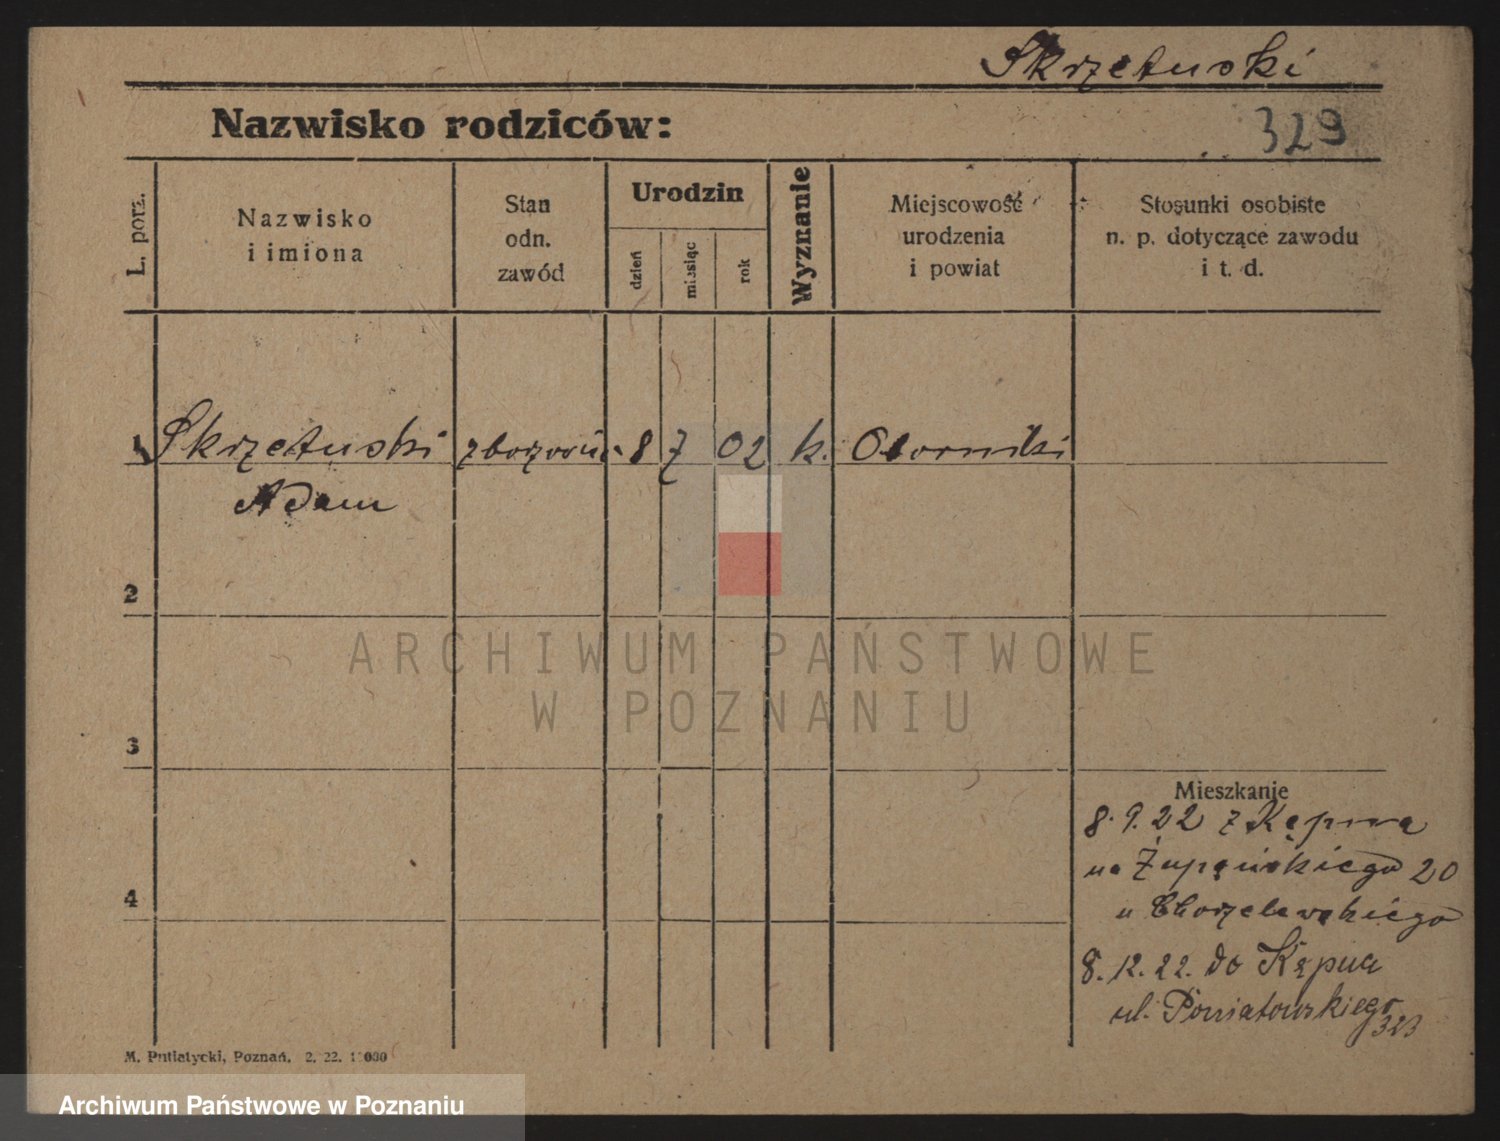 Skrzetuski
Nazwisko rodziców:
329
L. porz.
Nazwisko
i imiona
Stan
odn.
zawód
Urodzin
dzień
miesiąc
rok
Wyznanie
Miejscowość
urodzenia
i powiat
Stosunki osobiste
n. p. dotyczące zawodu
i t. d.
1 Skrzetuski 8 7 02 k. Oborniki
Adam
2
3
4
Mieszkanie
8. 9. 22 z Kępna
na Żupańskiego 20
u Chorzelewskiego
8. 12. 22. do Kępna
ul. Poniatowskiego
323
M. Putiatycki, Poznań. 2. 22.
ARCHIWUM PAŃSTWOWE
W POZNANIU
Archiwum Państwowe w Poznaniu